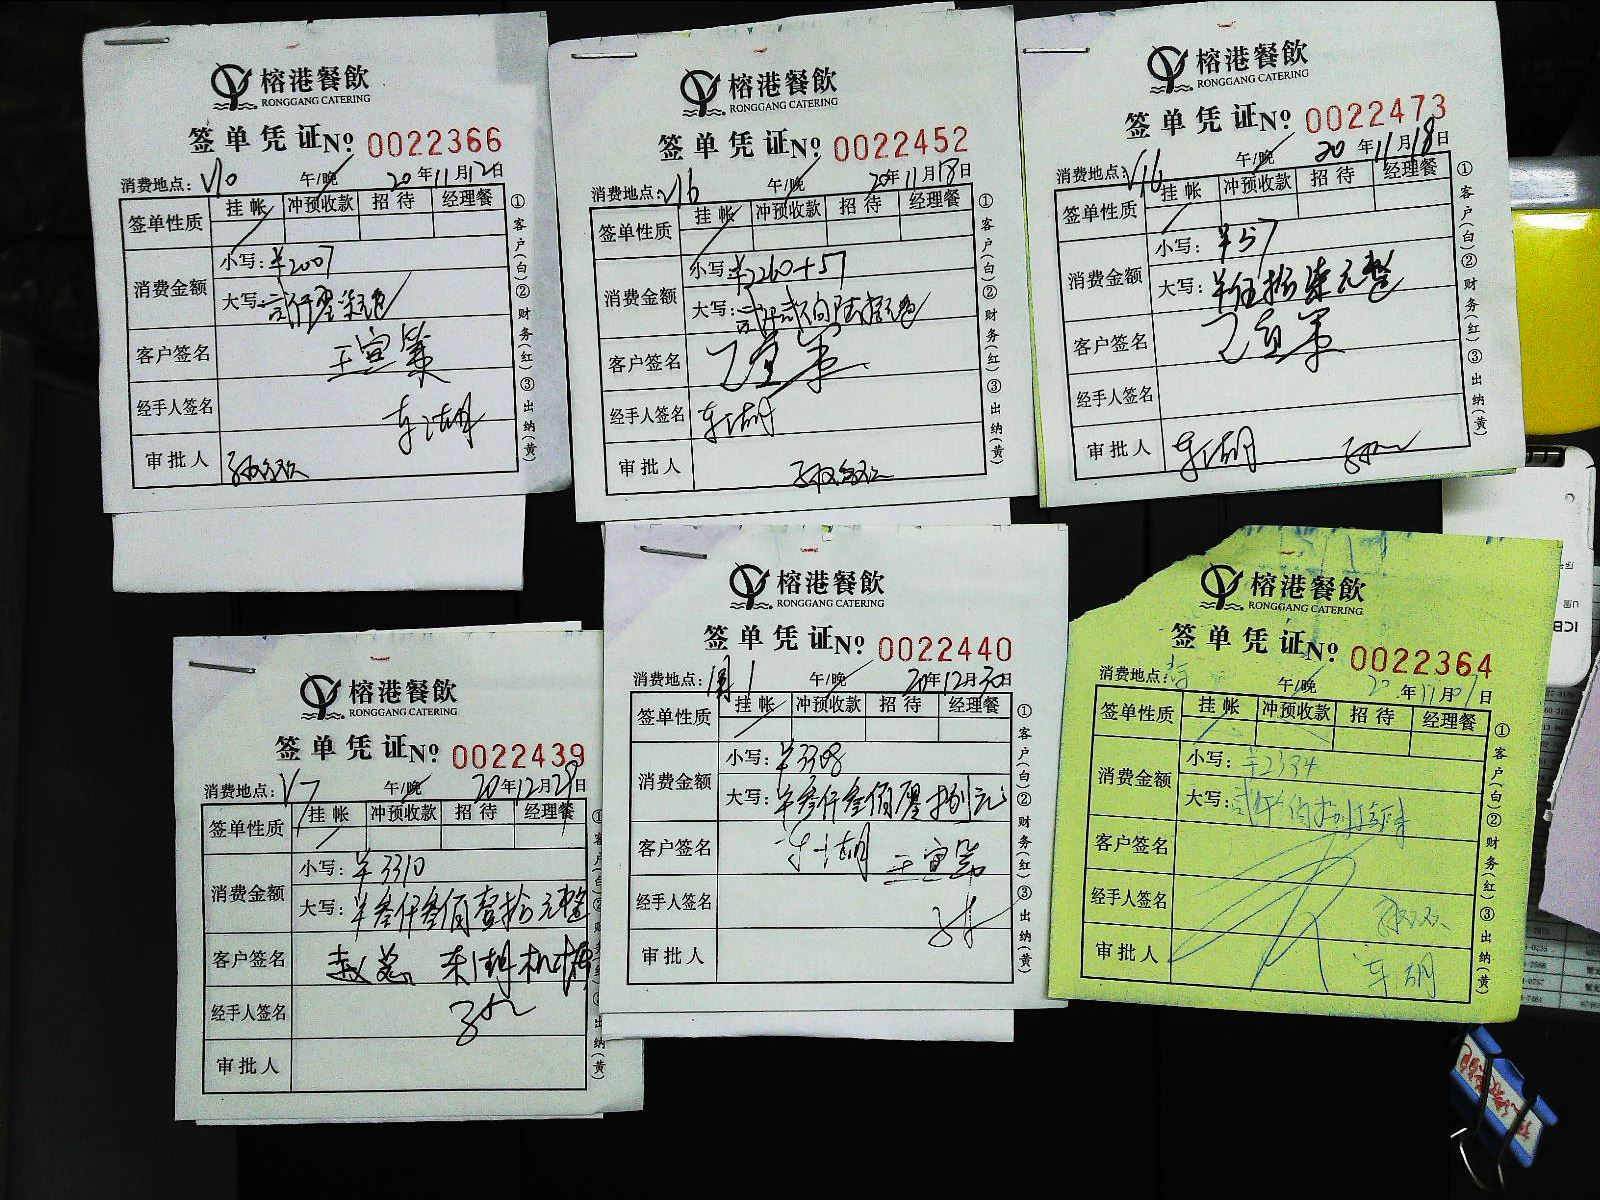 榕港餐飲
RONGGANG CATERING
签单凭证 No 0022366
消费地点: V10 午/晚 20年11月12日
签单性质 挂帐 冲预收款 招待 经理餐
消费金额 小写: ¥2007
大写: 贰仟零柒元
客户签名 王宣
经手人签名
审批人
①客户(白)②财务(红)③出纳(黄)
榕港餐飲
RONGGANG CATERING
签单凭证 No 0022452
消费地点: V16 午/晚 20年11月18日
签单性质 挂帐 冲预收款 招待 经理餐
消费金额 小写: ¥2260+57
大写: 贰仟贰佰陆拾元
客户签名
经手人签名
审批人
①客户(白)②财务(红)③出纳(黄)
榕港餐飲
RONGGANG CATERING
签单凭证 No 0022473
消费地点: V16 午/晚 20年11月18日
签单性质 挂帐 冲预收款 招待 经理餐
消费金额 小写: ¥57
大写: ¥伍拾柒元整
客户签名
经手人签名
审批人
①客户(白)②财务(红)③出纳(黄)
榕港餐飲
RONGGANG CATERING
签单凭证 No 0022439
消费地点: V7 午/晚 20年12月29日
签单性质 挂帐 冲预收款 招待 经理餐
消费金额 小写: ¥3310
大写: ¥叁仟叁佰壹拾元整
客户签名
经手人签名
审批人
榕港餐飲
RONGGANG CATERING
签单凭证 No 0022440
消费地点: 午/晚 20年12月30日
签单性质 挂帐 冲预收款 招待 经理餐
消费金额 小写: ¥3308
大写: ¥叁仟叁佰零捌元
客户签名 王宣
经手人签名
审批人
①客户(白)②财务(红)③出纳(黄)
榕港餐飲
RONGGANG CATERING
签单凭证 No 0022364
消费地点: 午/晚 20年11月01日
签单性质 挂帐 冲预收款 招待 经理餐
消费金额 小写:
大写:
客户签名
经手人签名
审批人
①客户(白)②财务(红)③出纳(黄)